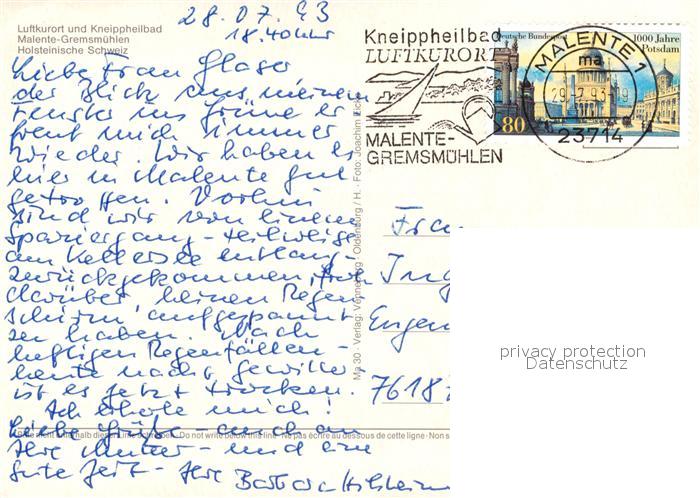 Luftkurort und Kneippheilbad
Malente-Gremsmühlen
Holsteinische Schweiz
28.07.93
18.40 Uhr
Liebe Frau Glaser
der Blick aus meinem
Fenster ins Grüne er
freut mich immer
wieder. Wir haben es
hier in Malente gut
getroffen. Vorhin
sind wir von einem
Spaziergang - teilweise
am Kellersee entlang -
zurückgekommen, froh
darüber keinen Regen
schirm aufgespannt
zu haben. Nach
heftigen Regenfällen -
heute nacht Gewitter
ist es jetzt trocken.
Ich erhole mich!
Liebe Grüße - auch an
Ihre Mutter - und eine
gute Zeit - Ihre Barbara
Ma 30 · Verlag: · Oldenburg / H. · Foto: Joachim
Do not write below this line · Ne pas écrire au dessous de cette ligne · Non s
Kneippheilbad
LUFTKURORT
MALENTE-
GREMSMÜHLEN
Deutsche Bundespost
1000 Jahre
Potsdam
80
MALENTE 1
ma
23714
Frau
Ing
Eugen
7618
privacy protection
Datenschutz